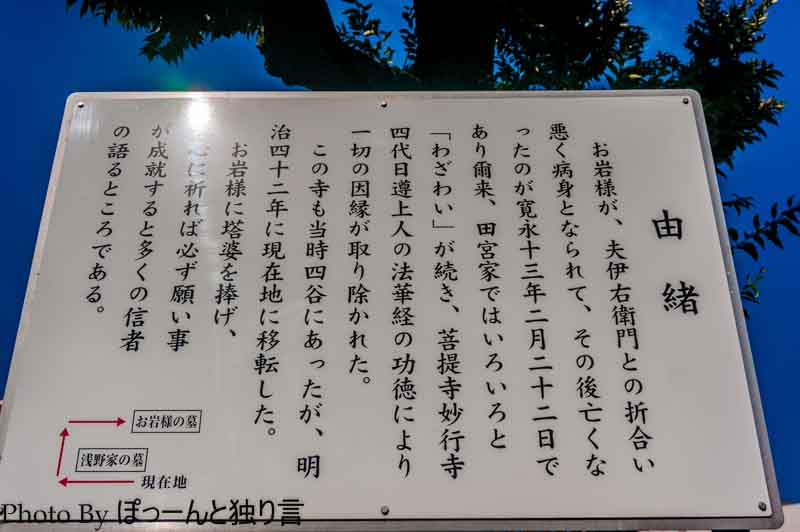 由緒
お岩様が、夫伊右衛門との折合い
悪く病身となられて、その後亡くな
ったのが寛永十三年二月二十二日で
あり爾来、田宮家ではいろいろと
「わざわい」が続き、菩提寺妙行寺
四代日遵上人の法華経の功徳により
一切の因縁が取り除かれた。
この寺も当時四谷にあったが、明
治四十二年に現在地に移転した。
お岩様に塔婆を捧げ、
心に祈れば必ず願い事
が成就すると多くの信者
の語るところである。
お岩様の墓
浅野家の墓
現在地
Photo By ぽっーんと独り言